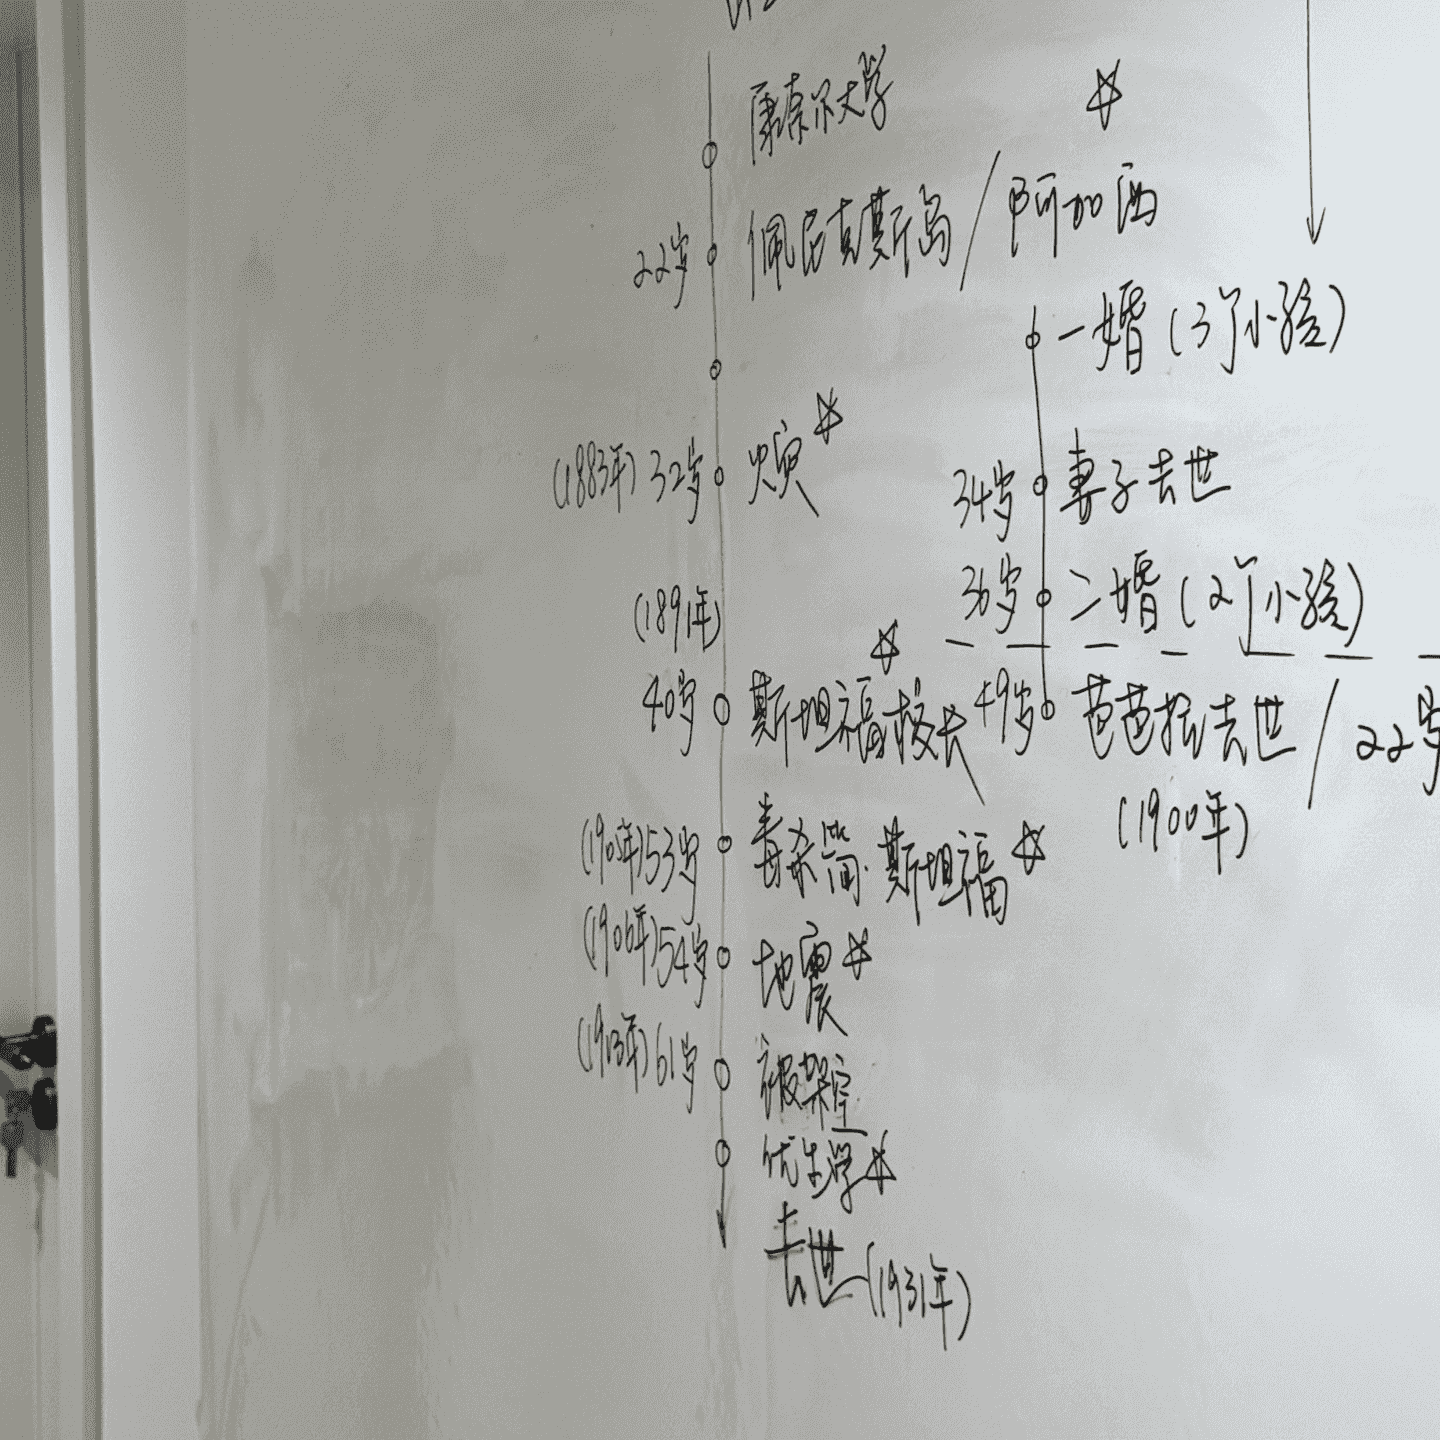 康奈尔大学
22岁 佩尼克斯岛/阿加西
一婚(3个小孩)
(1883年) 32岁
34岁 妻子去世
36岁 二婚(2个小孩)
(1891年)
40岁 斯坦福校长
49岁 芭芭拉去世/22岁
(1900年)
(1905年)53岁 毒杀简·斯坦福
(1906年)54岁 地震
(1913年)61岁 被架空
优生学
去世(1931年)